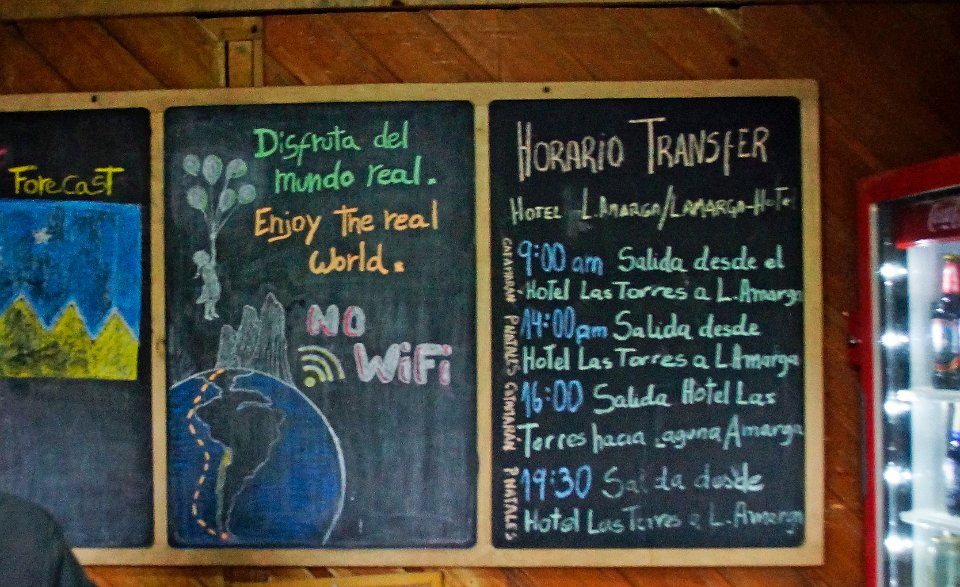 Forecast
Disfruta del
mundo real.
Enjoy the real
world.
NO
WiFi
HORARIO TRANSFER
HOTEL - L.AMARGA/LAMARGA-HOTEL
CATAMARÁN
9:00 am Salida desde el
Hotel Las Torres a L.Amarga
P NATALES
14:00 pm Salida desde
Hotel Las Torres a L.Amarga
CATAMARÁN
16:00 Salida Hotel Las
Torres hacia Laguna Amarga
P NATALES
19:30 Salida desde
Hotel Las Torres a L.Amarga